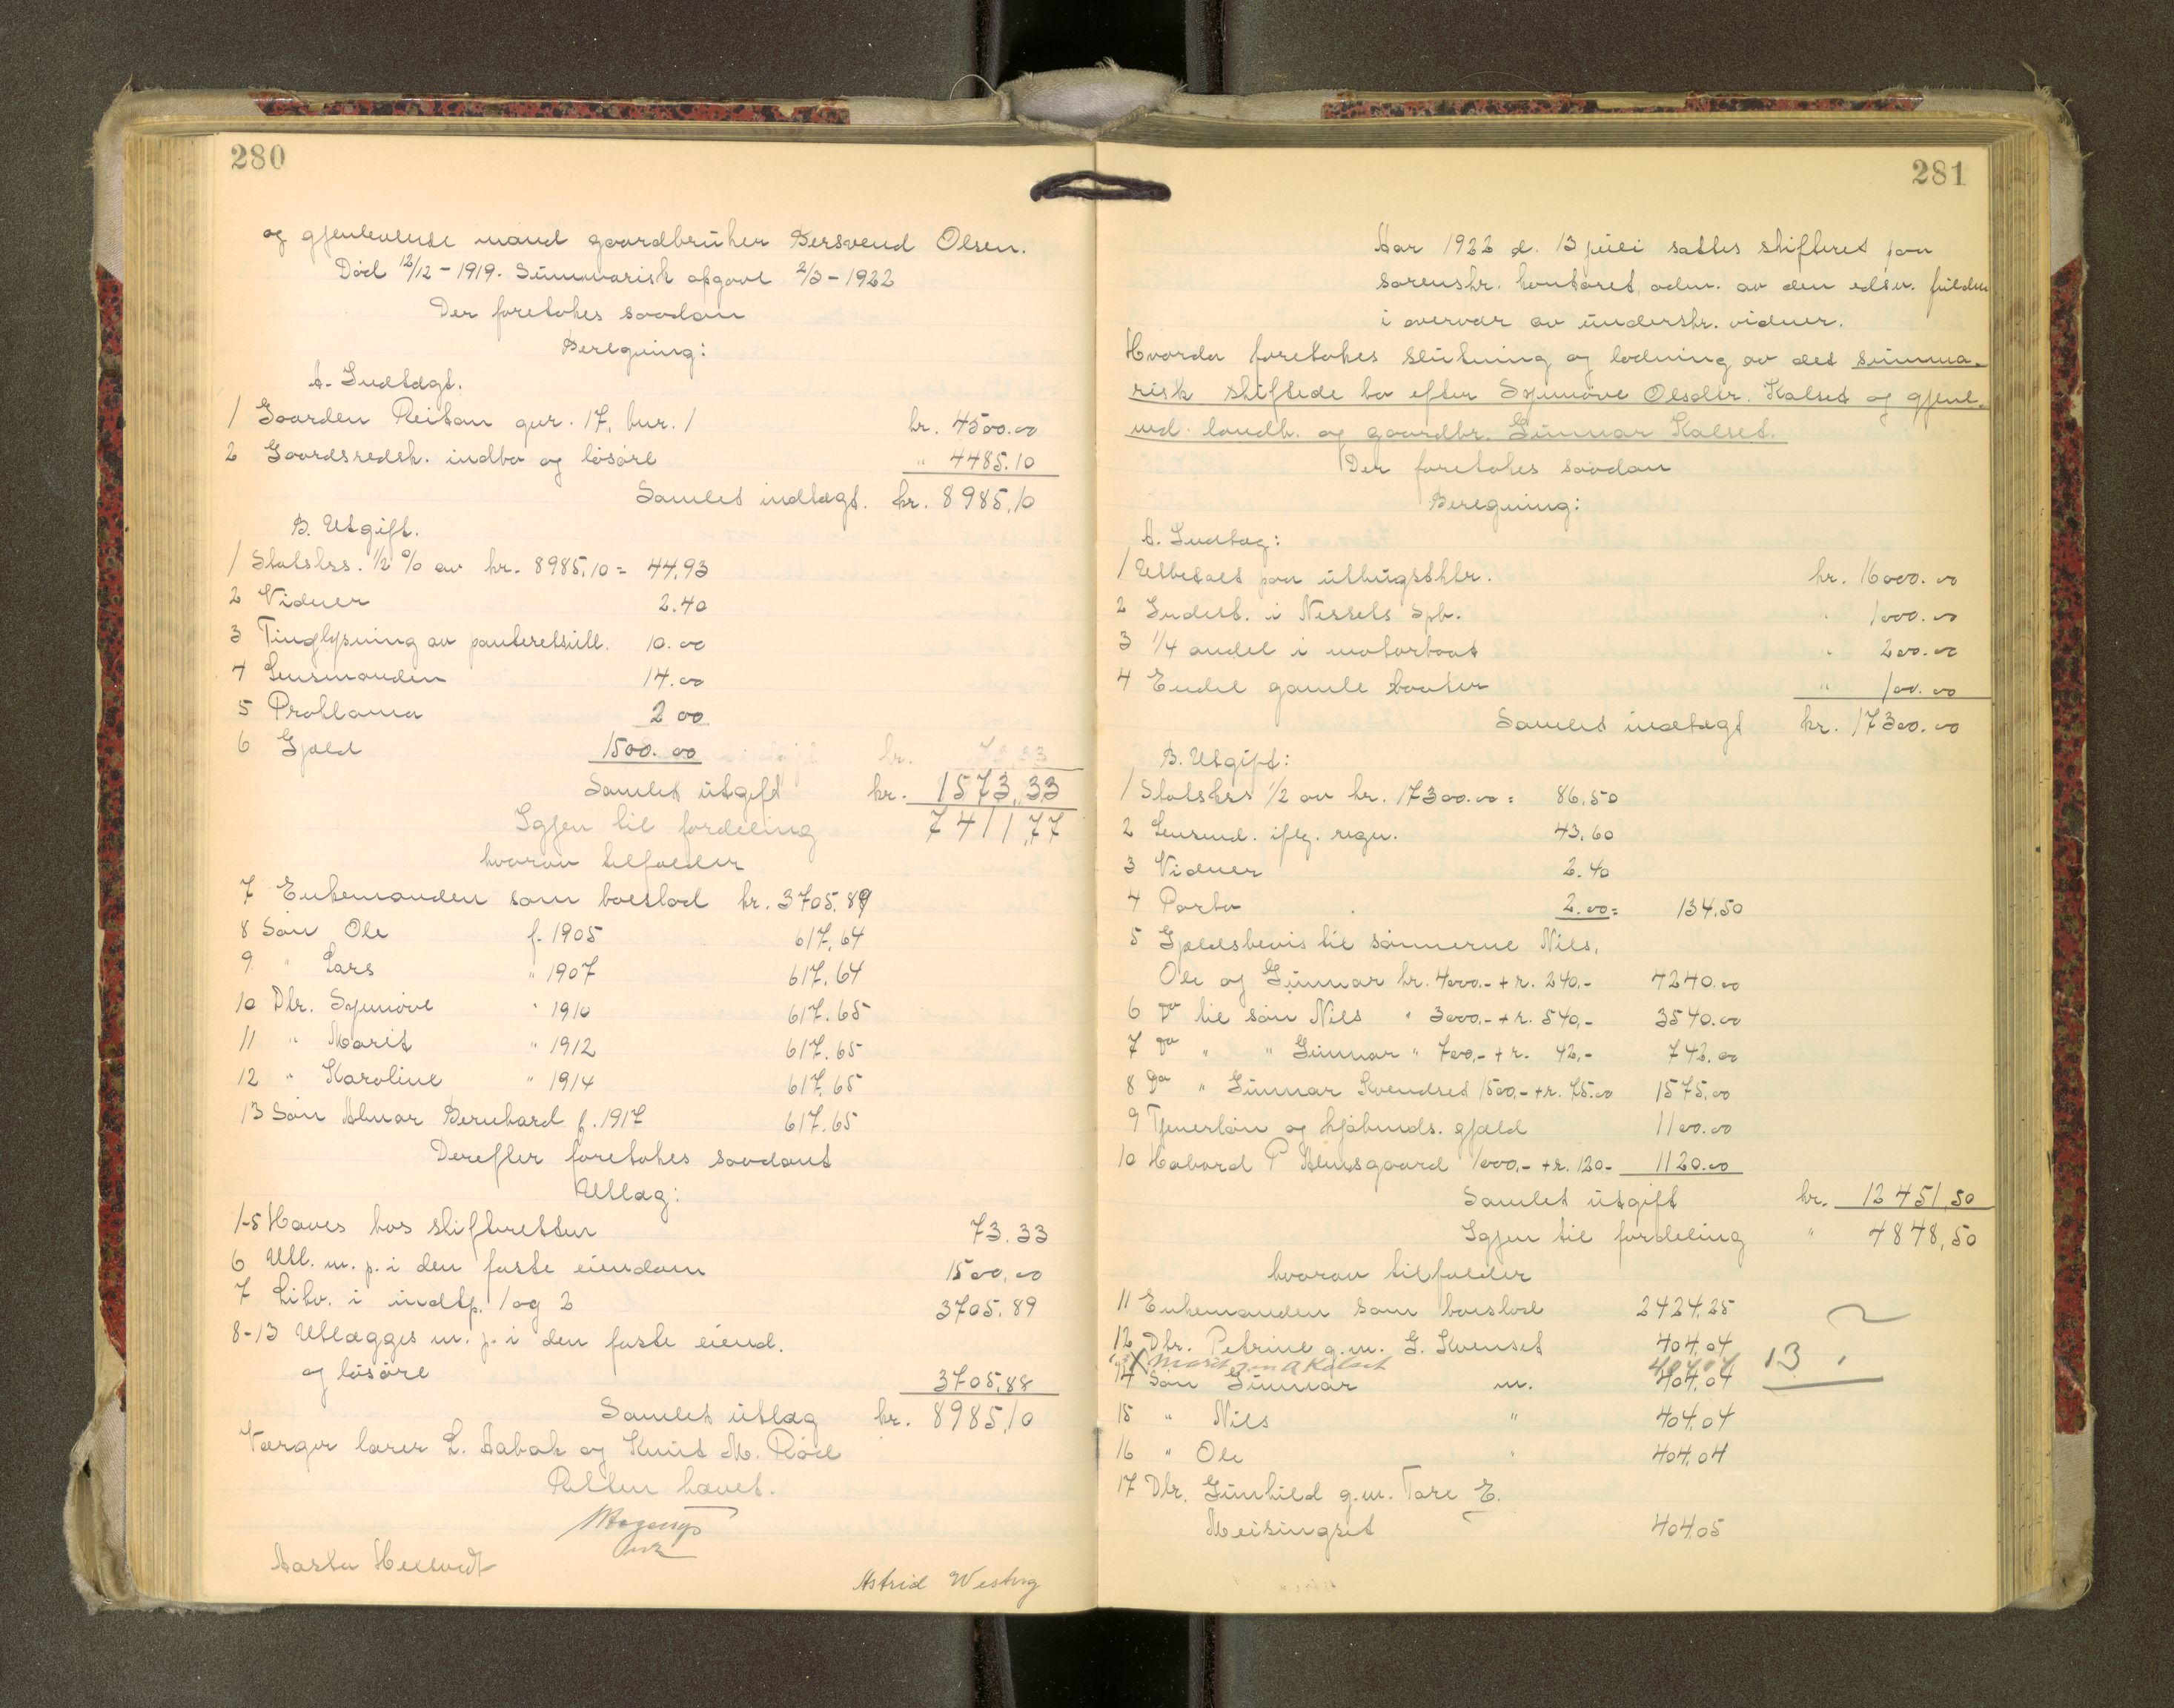 280
og gjenlevende mand gaardbruker Bersvend Olsen.
Död 12/12-1919. Summarisk opgave 2/3-1922
Der foretokes saadan
Beregning:
A. Indtægt.
1 Gaarden Reitan gnr. 17, bnr. 1 kr. 4500.00
2 Gaardsredsk. indbo og lösöre " 4485.10
Samlet indtægt. kr. 8985,10
B. Utgift.
1 Statskss. 1/2 % av kr. 8985,10 = 44,93
2 Vidner 2.40
3 Tinglysning av panteretsutl. 10.00
4 Lensmanden 14.00
5 Proklama 2 00
6 Gjæld 1500.00 kr. 73,33
Samlet utgift kr. 1573,33
Igjen til fordeling 7411,77
hvorav tilfalder
7 Enkemanden som boeslod kr. 3705.89
8 Sön Ole f. 1905 617,64
9 " Lars " 1907 617.64
10 Dtr. Synnöve " 1910 617.65
11 " Marit " 1912 617.65
12 " Karoline " 1914 617.65
13 Sön Almar Bernhard f. 1917 617.65
Derefter foretokes saadant
Utlæg:
1-5 Haves hos skifteretten 73.33
6 Utl. m. p. i den faste eiendom 1500,00
7 Likv. i indtp. 1 og 2 3705.89
8-13 Utlægges m. p. i den faste eiend.
og lösöre 3705,88
Samlet utlæg kr. 8985,10
Værger lærer L. Aabak og Knut M. Röd
Retten hævet.
Aasta Hellvedt
Astrid Westvig
281
Aar 1922 d. 13 juli sattes skifteret paa
sorenskr. kontoret, adm. av den edsv. fuldm
i overvær av underskr. vidner.
Hvorda foretokes slutning og lodning av det summa-
risk skiftede bo efter Synnöve Olsdtr. Kalset og gjenl.
md. landh. og gaardbr. Gunnar Kalset.
Der foretokes saadan
Beregning:
A. Indtæg:
1 Utbetalt paa utbugsthlr. kr. 16000.00
2 Indest. i Nessets Spb. " 1000.00
3 1/4 andel i motorbaat " 200.00
4 Endel gamle baater " 100.00
Samlet indtægt kr. 17300.00
B. Utgift:
1 Statskss 1/2 av kr. 17300.00 = 86,50
2 Lensmd. iflg. regn. 43,60
3 Vidner 2.40
4 Porto 2.00 = 134,50
5 Gjældsbevis til sönnerne Nils,
Ole og Gunnar kr. 4000.- + r. 240,- 4240.00
6 Do til sön Nils " 3000,- + r. 540,- 3540.00
7 Do " " Gunnar " 700,- + r. 42,- 742.00
8 Do " Gunnar Kvendset 1500,- + r. 75.00 1575,00
9 Tjenerlön og kjöbmds. gjæld 1100.00
10 Habord P Almsgaard 1000,- + r. 120- 1120.00
Samlet utgift kr. 12451,50
Igjen til fordeling " 4848,50
hvorav tilfalder
11 Enkemanden som boeslod 2424,25
12 Dtr. Petrine g.m. G. Kvenset 404,04
13 X Marit gm A Kalset 404,04 13
14 Sön Gunnar m. 404,04
15 " Nils " 404,04
16 " Ole " 404.04
17 Dtr. Gunhild g.m. Tore E.
Meisingset 404,05